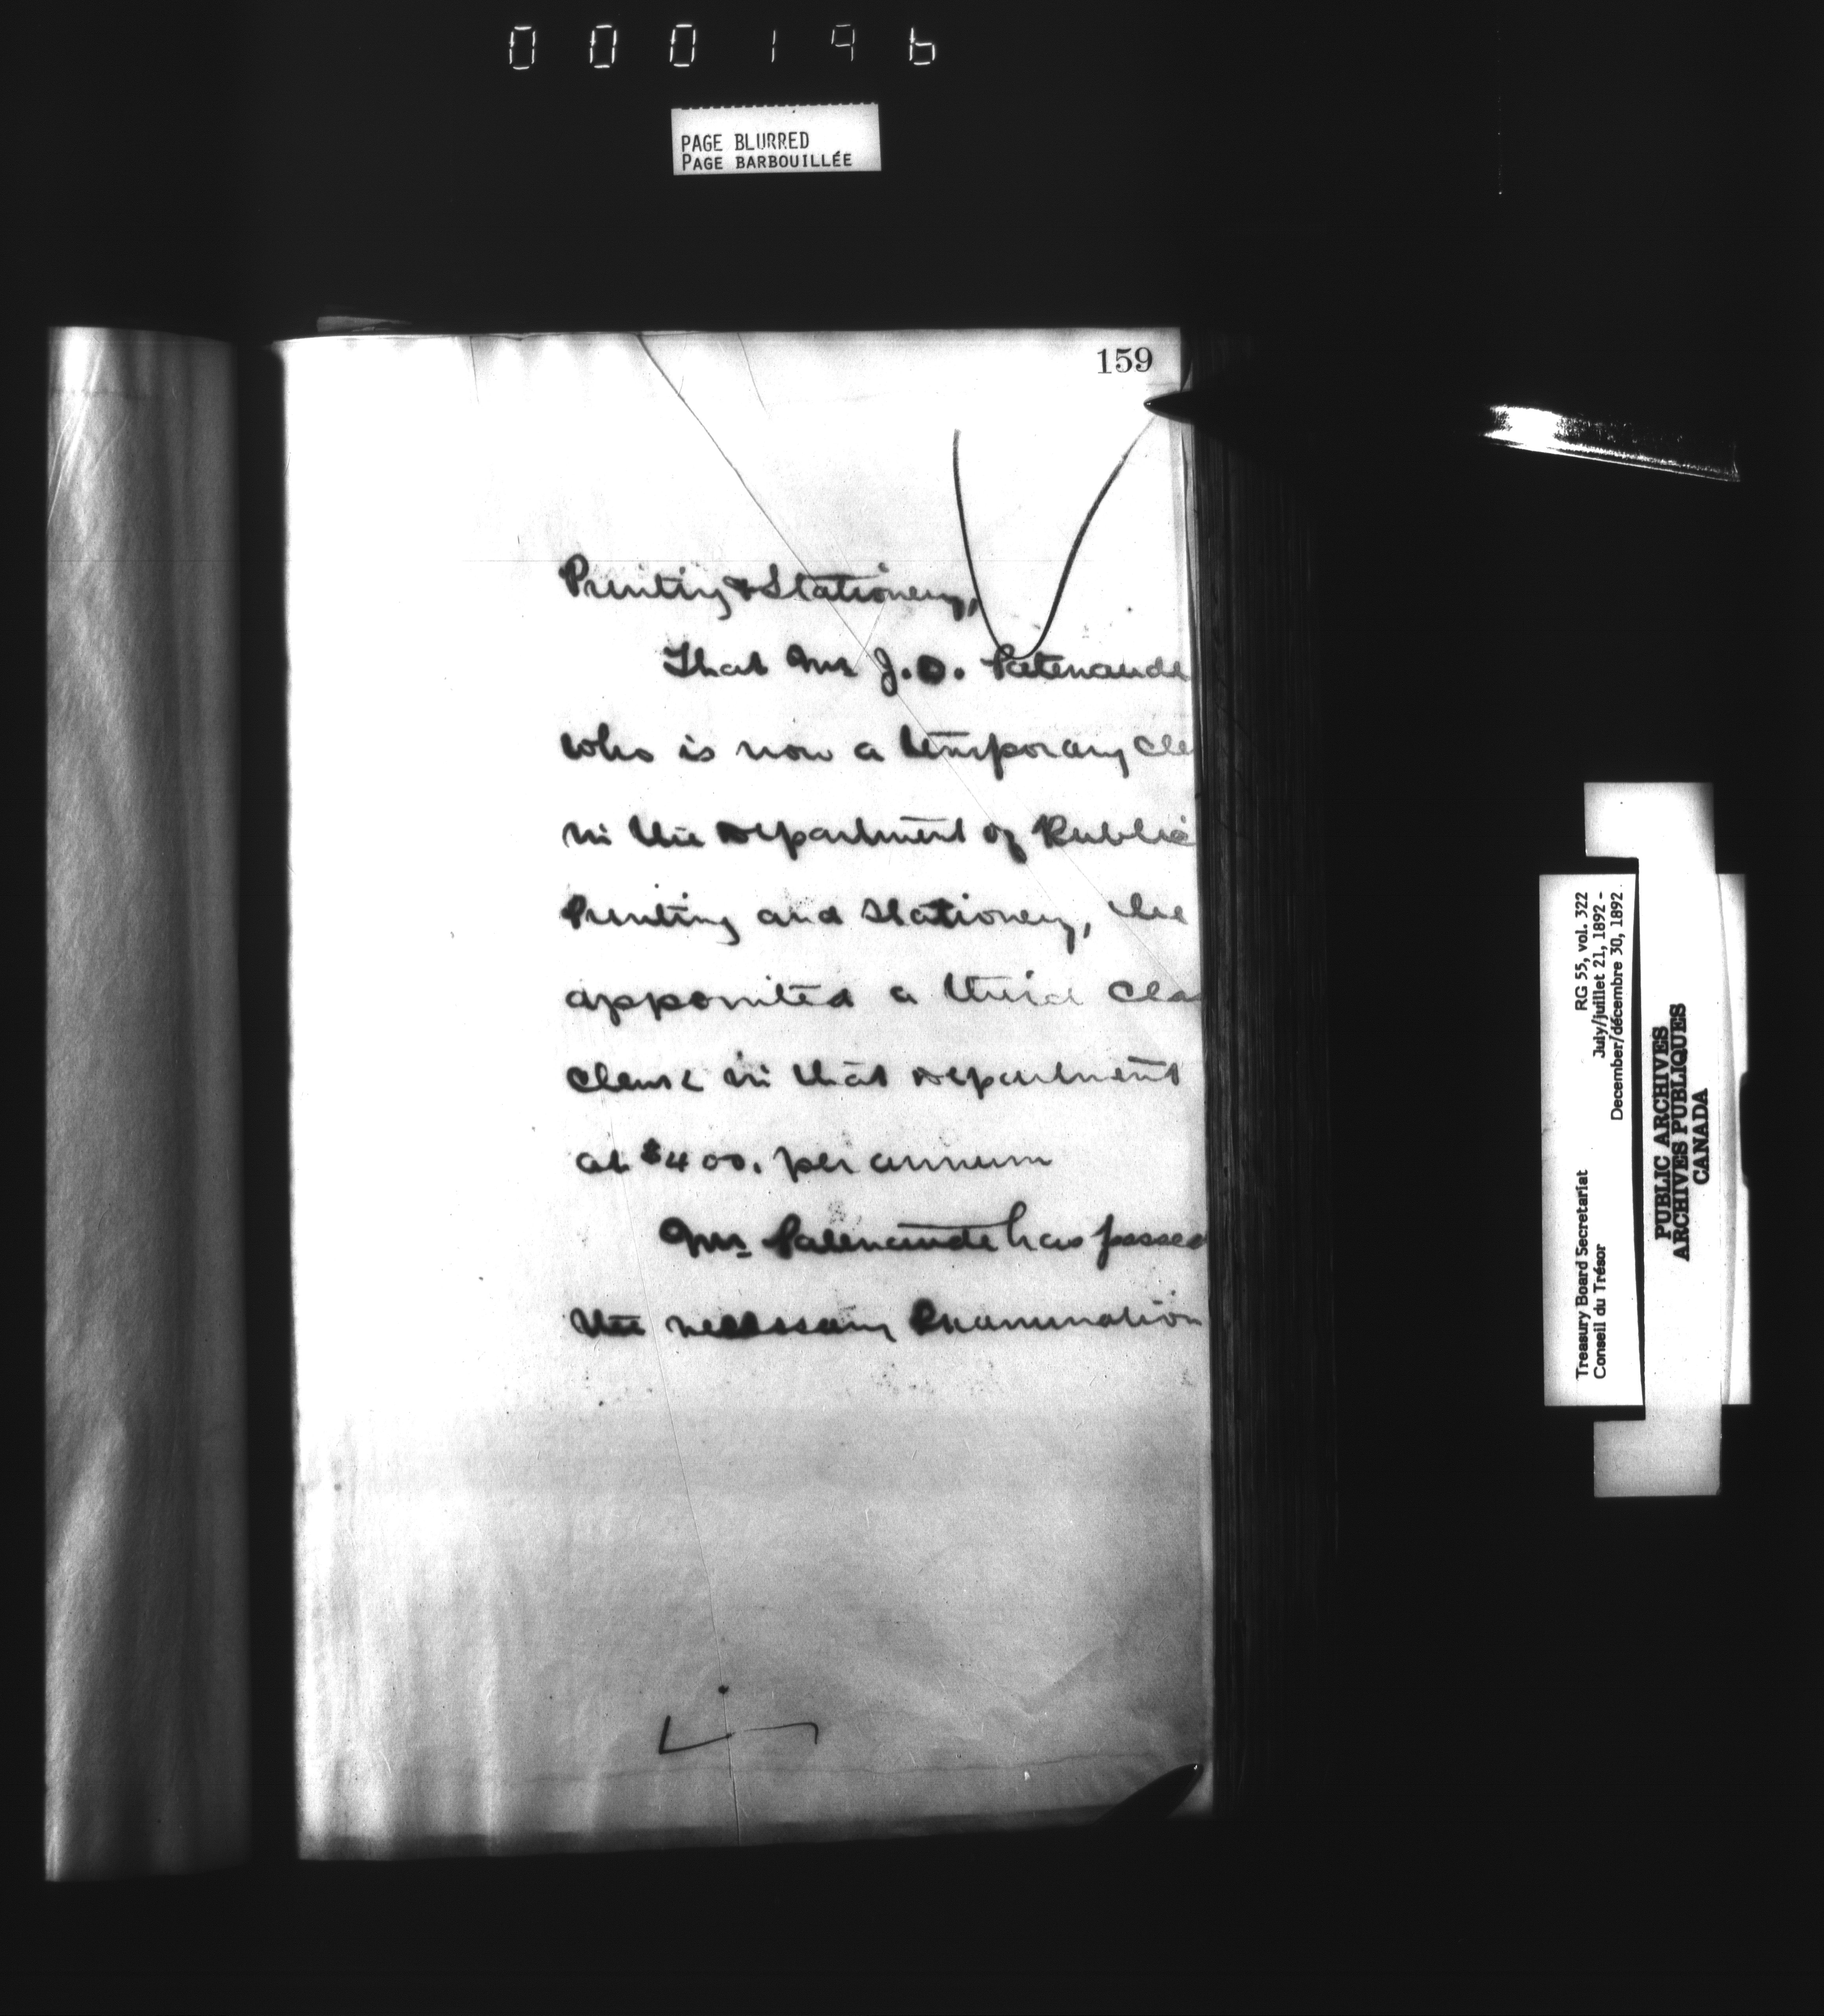 000196
PAGE BLURRED
PAGE BARBOUILLÉE
159
Printing & Stationery,
That Mr J. O. Patenaude
who is now a temporary cle
in the Department of Public
Printing and Stationery, be
appointed a third clas
clerk in that Department
at $400. per annum
Mr Patenaude has passed
the necessary Examination
Treasury Board Secretariat RG 55, vol. 322
Conseil du Trésor July/juillet 21, 1892 -
December/décembre 30, 1892
PUBLIC ARCHIVES
ARCHIVES PUBLIQUES
CANADA